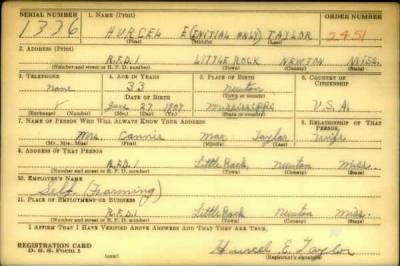 SERIAL NUMBER 1. NAME (Print) ORDER NUMBER
1336 HURCEL E(INITIAL ONLY) TAYLOR 2451
(First) (Middle) (Last)
2. ADDRESS (Print)
R.F.D. 1 LITTLE ROCK NEWTON MISS.
(Number and street or R. F. D. number) (Town) (County) (State)
3. TELEPHONE 4. AGE IN YEARS 5. PLACE OF BIRTH 6. COUNTRY OF CITIZENSHIP
none 33 Newton
DATE OF BIRTH (Town or county)
June 27 1907 Mississippi U.S.A.
(Exchange) (Number) (Mo.) (Day) (Yr.) (State or country)
7. NAME OF PERSON WHO WILL ALWAYS KNOW YOUR ADDRESS 8. RELATIONSHIP OF THAT PERSON
Mrs. Cannie Mae Taylor Wife
(Mr., Mrs., Miss) (First) (Middle) (Last)
9. ADDRESS OF THAT PERSON
R.F.D. 1 Little Rock Newton Miss.
(Number and street or R. F. D. number) (Town) (County) (State)
10. EMPLOYER'S NAME
Self (Farming)
11. PLACE OF EMPLOYMENT OR BUSINESS
R.F.D. 1 Little Rock Newton Miss.
(Number and street or R. F. D. number) (Town) (County) (State)
I AFFIRM THAT I HAVE VERIFIED ABOVE ANSWERS AND THAT THEY ARE TRUE.
REGISTRATION CARD
D. S. S. Form 1 (over) Hurcel E. Taylor
(Registrant's signature)